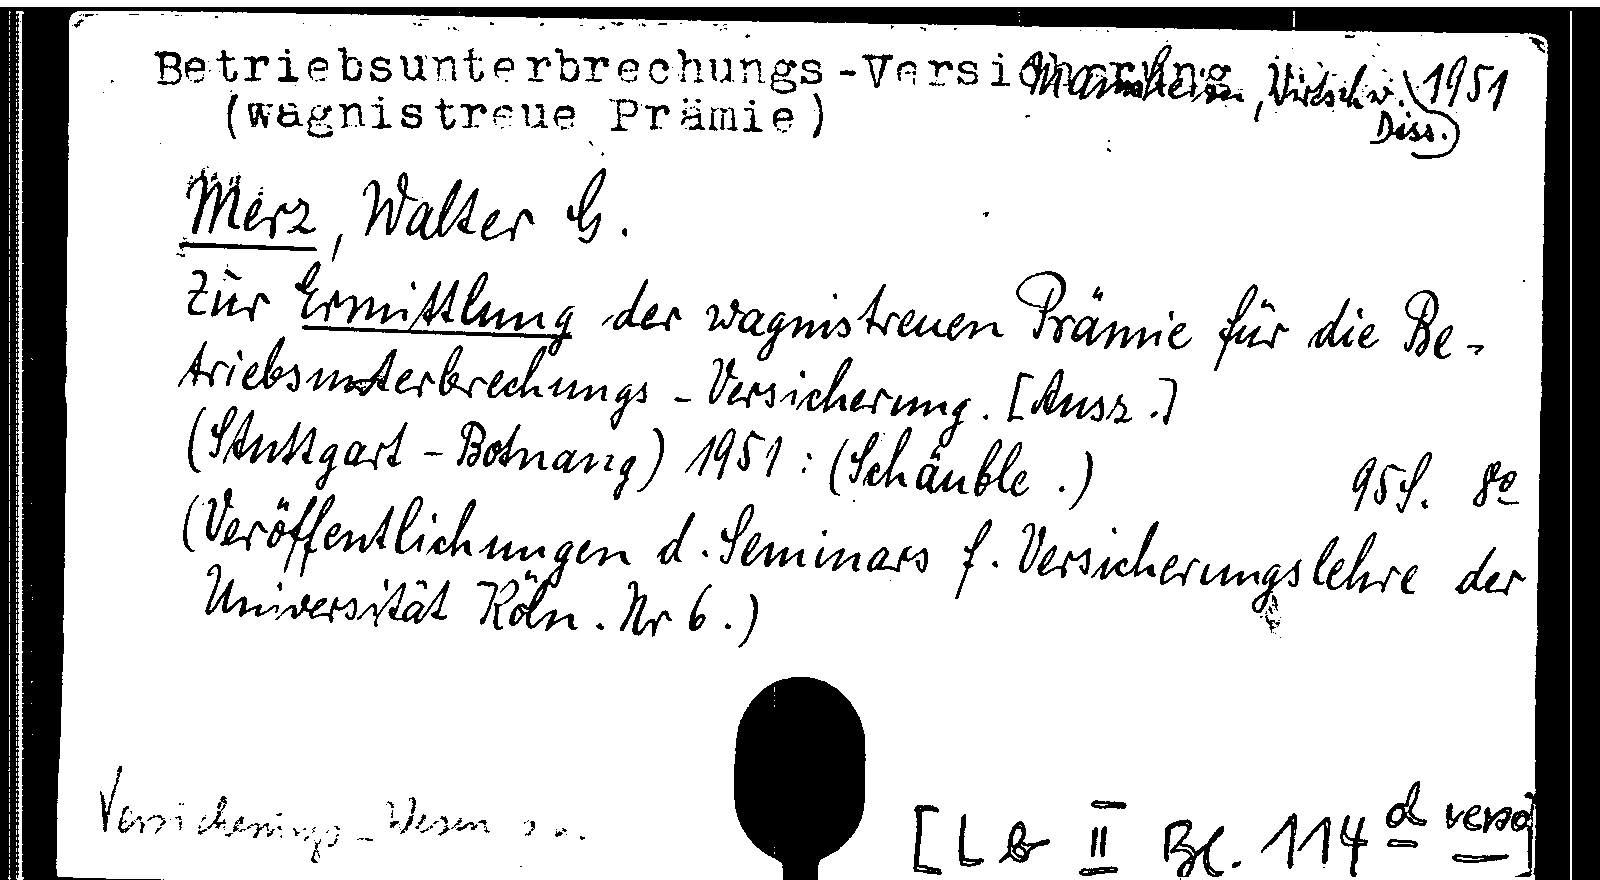 Betriebsunterbrechungs-Versicherung Mannheim, Wirtsch.w. 1951
(wagnistreue Prämie) Diss.)
Merz, Walter G.
Zur Ermittlung der wagnistreuen Prämie für die Be-
triebsunterbrechungs-Versicherung. [Ausz.]
(Stuttgart-Botnang) 1951: (Schäuble.) 95 S. 8º
(Veröffentlichungen d. Seminars f. Versicherungslehre der
Universität Köln. Nr 6.)
Versicherungs-Wesen
[L b II Bl. 114 d verso]